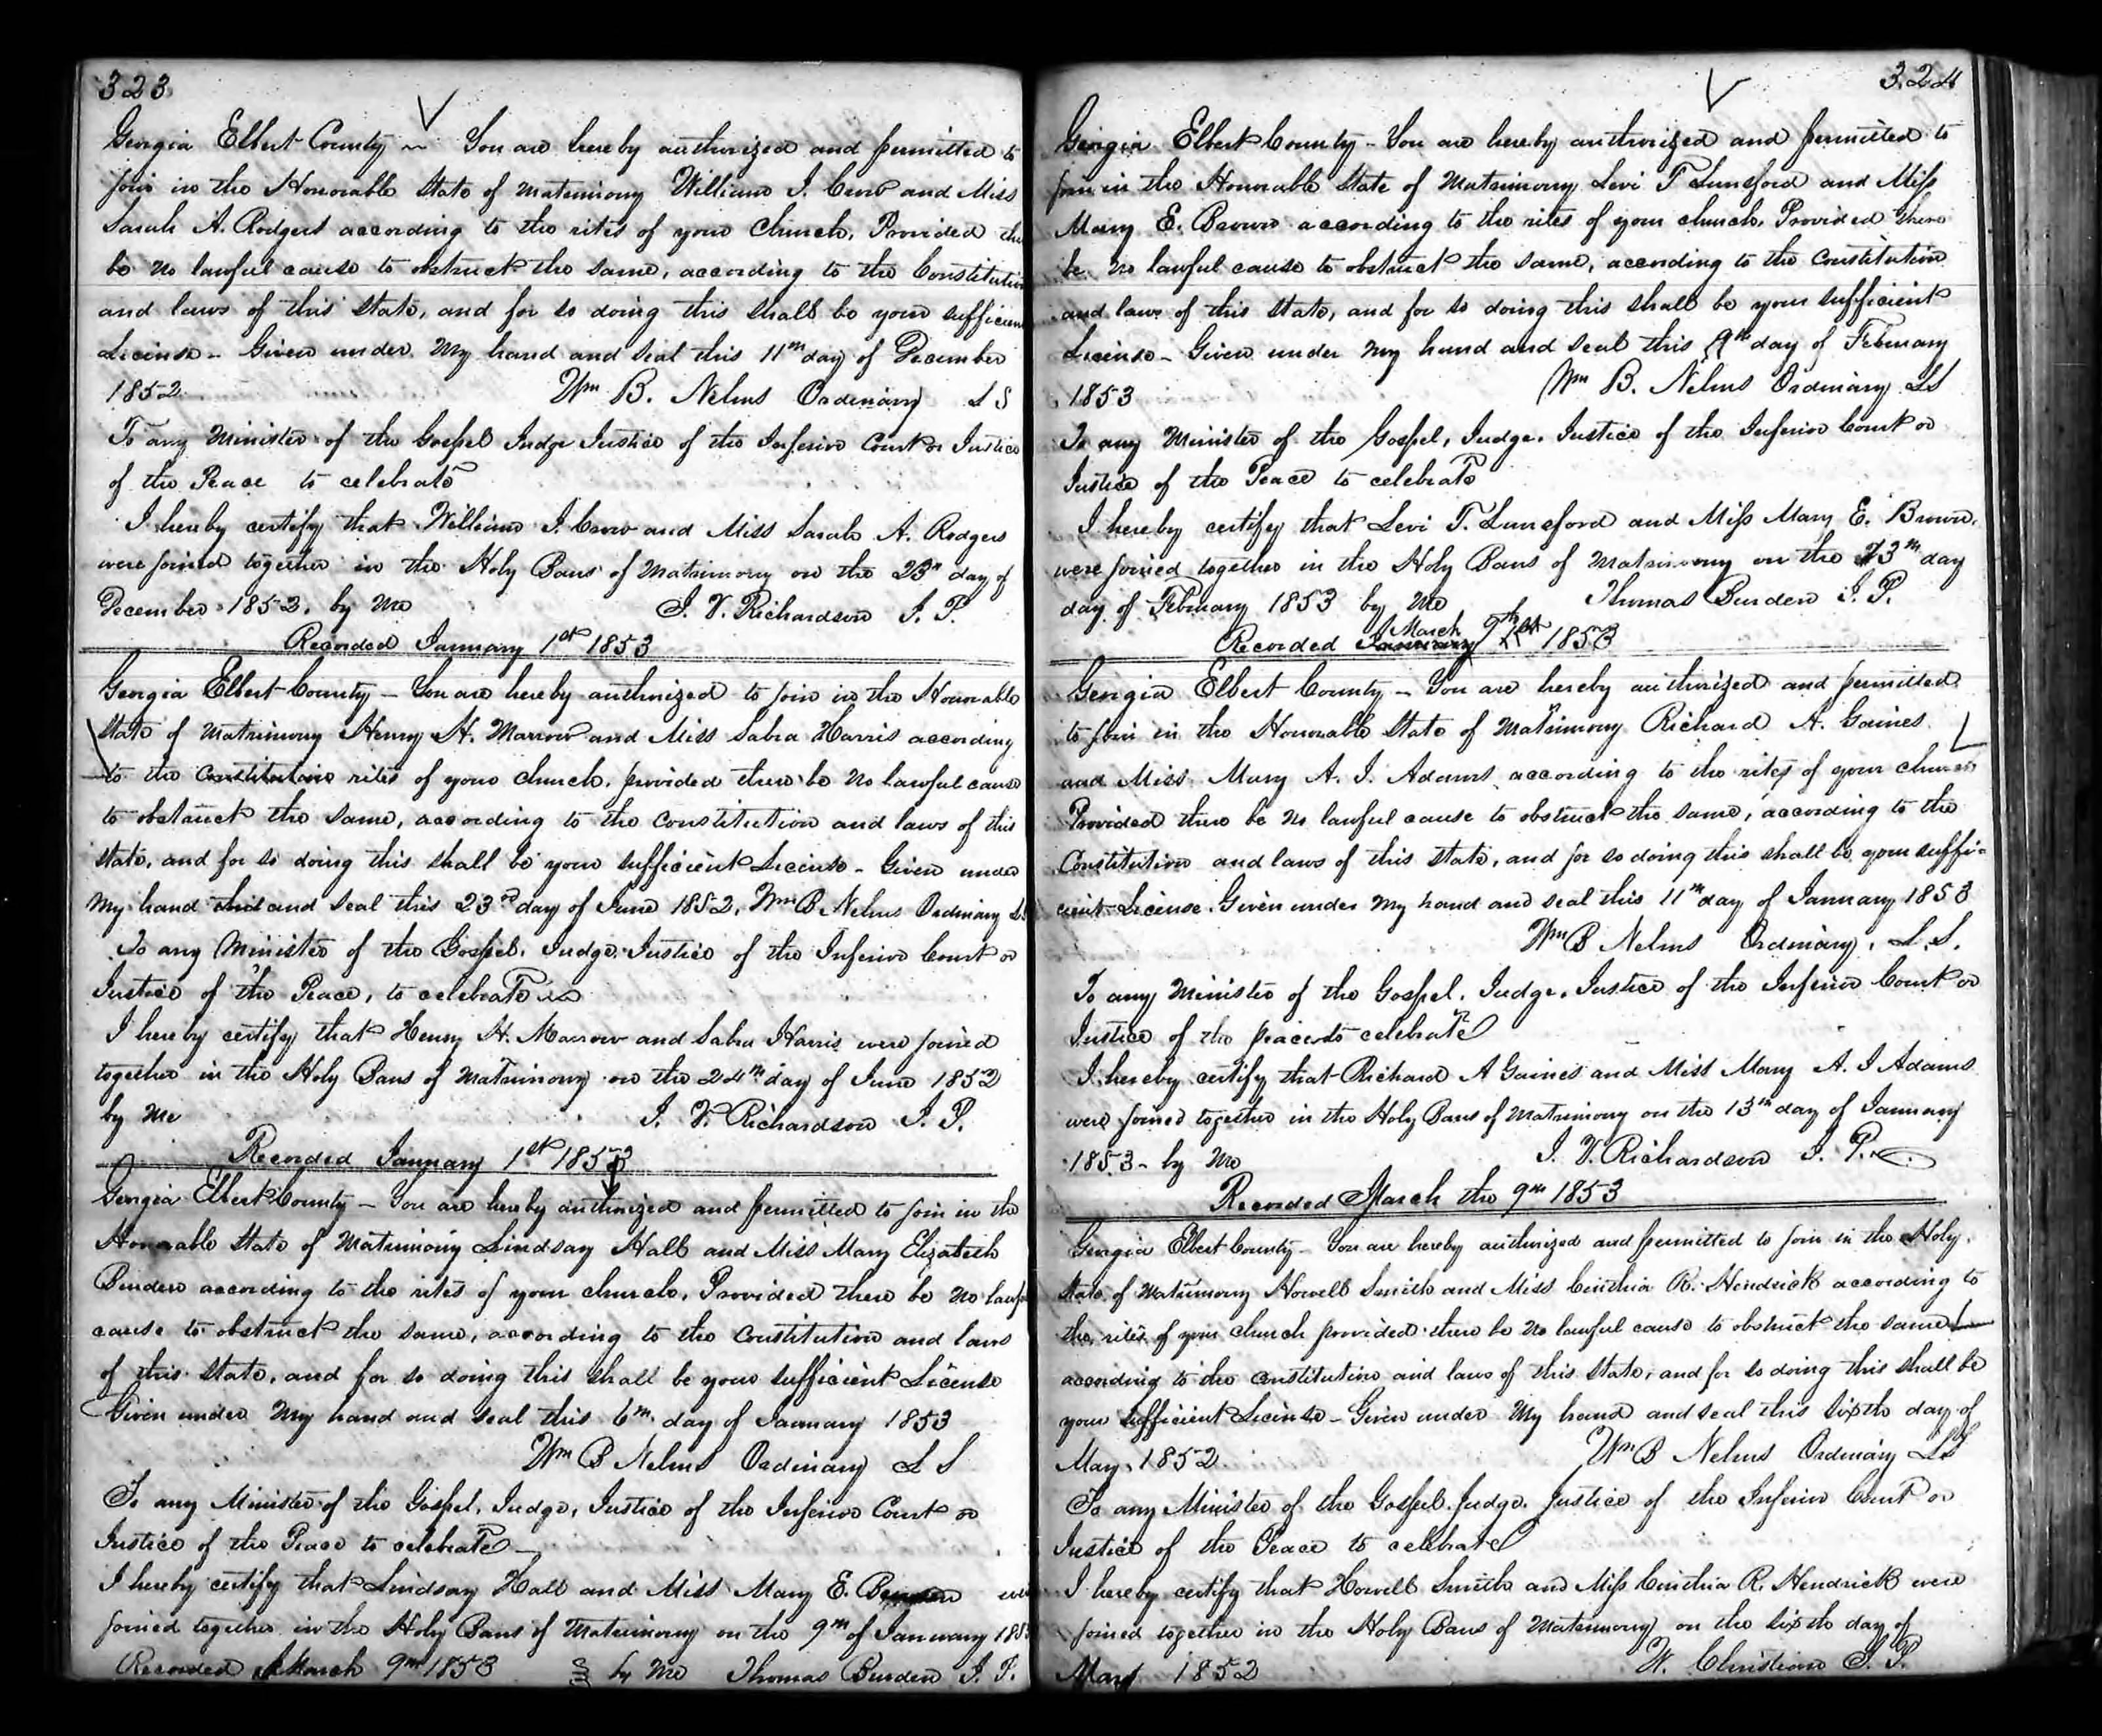 323
Georgia Elbert County ~ You are hereby authorized and permitted to
join in the Honorable State of Matrimony William J. Crow and Miss
Sarah A. Rodgers according to the rites of your Church, Provided the
be no lawful cause to obstruct the same, according to the Constitution
and laws of this State, and for so doing this shall be your sufficient
License - Given under My hand and seal this 11th day of December
1852 Wm B. Nelms Ordinary L S
To any Minister of the Gospel Judge Justice of the Inferior Court or Justice
of the Peace to celebrate
I hereby certify that William J. Crow and Miss Sarah A. Rodgers
were joined together in the Holy Bans of Matrimony on the 23rd day of
December 1852. by Me J. V. Richardson J. P.
Recorded January 1st 1853
Georgia Elbert County - You are hereby authorized to join in the Honorable
State of Matrimony Henry H. Marrow and Miss Sabra Harris according
to the Constitution rites of your church. provided there be no lawful cause
to obstruct the same, according to the Constitution and laws of this
State, and for so doing this shall be your sufficient License - Given under
My hand and seal this 23rd day of June 1852, Wm B. Nelms Ordinary LS
To any Minister of the Gospel. Judge. Justice of the Inferior Court or
Justice of the Peace, to celebrate
I hereby certify that Henry H. Marrow and Sabra Harris were joined
together in the Holy Bans of Matrimony on the 24th day of June 1852
by Me J. V. Richardson J. P.
Recorded January 1st 1853
Georgia Elbert County - You are hereby authorized and permitted to join in the
Honorable State of Matrimony Lindsay Hall and Miss Mary Elizabeth
Burden according to the rites of your church, Provided there be no lawful
cause to obstruct the same, according to the Constitution and laws
of this State, and for so doing this shall be your sufficient License
Given under My hand and seal this 6th day of January 1853
Wm B Nelms Ordinary L S
To any Minister of the Gospel, Judge, Justice of the Inferior Court or
Justice of the Peace to celebrate -
I hereby certify that Lindsay Hall and Miss Mary E. were
joined together in the Holy Bans of Matrimony on the 9th of January 1853
Recorded March 9th 1853 by Me Thomas Burden J. P.
324
Georgia Elbert County - You are hereby authorized and permitted to
join in the Honorable State of Matrimony Levi T Lunsford and Miss
Mary E. Brown according to the rites of your church, Provided there
be no lawful cause to obstruct the same, according to the Constitution
and laws of this State, and for so doing this shall be your sufficient
License - Given under My hand and seal this 9th day of February
1853 Wm B. Nelms Ordinary LS
To any Minister of the Gospel, Judge, Justice of the Inferior Court or
Justice of the Peace to celebrate
I hereby certify that Levi T. Lunsford and Miss Mary E. Brown,
were joined together in the Holy Bans of Matrimony on the 23th day
day of February 1853 by Me Thomas Burden J. P.
Recorded January March 9th 1st 1853
Georgia Elbert County - You are hereby authorized and permitted
to join in the Honorable State of Matrimony Richard A. Gaines
and Miss Mary A. J. Adams according to the rites of your church
Provided there be no lawful cause to obstruct the same, according to the
Constitution and laws of this State, and for so doing this shall be your suffi-
cient License. Given under My hand and seal this 11th day of January 1853
Wm B Nelms Ordinary, L. S.
To any Minister of the Gospel, Judge, Justice of the Inferior Court or
Justice of the peace to celebrate
I hereby certify that Richard A Gaines and Miss Mary A. J Adams
were joined together in the Holy Bans of Matrimony on the 13th day of January
1853 - by Me J. V. Richardson J. P.
Recorded March the 9th 1853
Georgia Elbert County - You are hereby authorized and permitted to join in the Holy
State of Matrimony Howell Smith and Miss Cinthia R. Hendrick according to
the rites of your church provided there be no lawful cause to obstruct the same
according to the Constitution and laws of this State, and for so doing this shall be
your sufficient License - Given under My hand and seal this sixth day of
May 1852 Wm B Nelms Ordinary LS
To any Minister of the Gospel. Judge. Justice of the Inferior Court or
Justice of the Peace to celebrate
I hereby certify that Howell Smith and Miss Cinthia R. Hendrick were
joined together in the Holy Bans of Matrimony on the sixth day of
May 1852 W. Christian J. P.